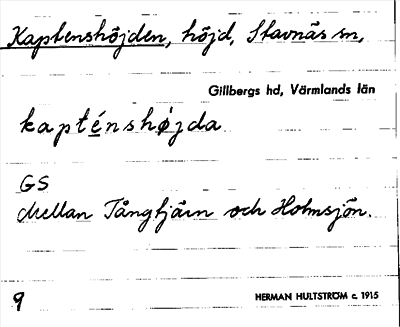 Kaptenshöjden, höjd, Stavnäs sn,
Gillbergs hd, Värmlands län
kapténshøjda
GS
Mellan Tångtjärn och Holmsjön.
9
HERMAN HULTSTRÖM c. 1915